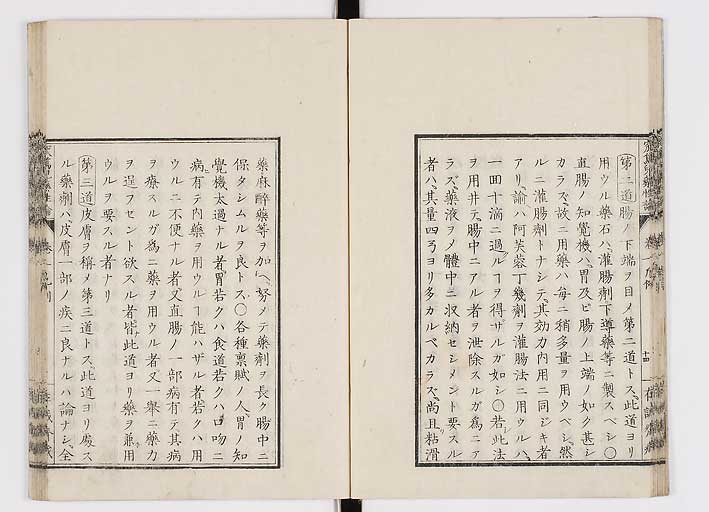 第二道腸ノ下端ヲ目ノ第二道トス、此道ヨリ
用ウル藥石ハ、灌腸劑下導藥等ニ製スベシ○
直腸ノ知覺機ハ、胃及ビ腸ノ上端ノ如ク甚シ
カラズ、故ニ用藥ハ毎ニ稍多量ヲ用ウベシ、然
ルニ灌腸劑トナシテ、其効力內用ニ同ジキ者
アリ、諭ハ阿芙蓉丁幾劑ヲ灌腸法ニ用ウルハ、
一回十滴ニ過ルヿヲ得ザルガ如シ○若此法
ヲ用井テ、腸中ニアル者ヲ泄除スルガ爲ニア
ラズ、藥液ヲメ體中ニ収納セシメント要スル
者ハ、其量四ヨリ多カルベカラズ、尚且粘滑
藥麻醉藥等ヲ加ヘ、努メテ藥劑ヲ長ク腸中ニ
保タシムルヲ良トス○各種禀賦ノ人、胃ノ知
覺機太過ナル者、胃若クハ食道若クハ口吻ニ
病有テ內藥ヲ用ウルヿ能ハザル者若クハ用
ウルニ不便ナル者又直腸ノ一部病有テ其病
ヲ療スルガ爲ニ藥ヲ用ウル者又一擧ニ藥力
ヲ逞フセント欲スル者皆此道ヨリ藥ヲ兼用
ウルヲ要スル者ナリ
第三道皮膚ヲ稱メ第三道トス、此道ヨリ處ス
ル藥劑ハ皮膚一部ノ疾ニ良ナルハ論ナシ、全